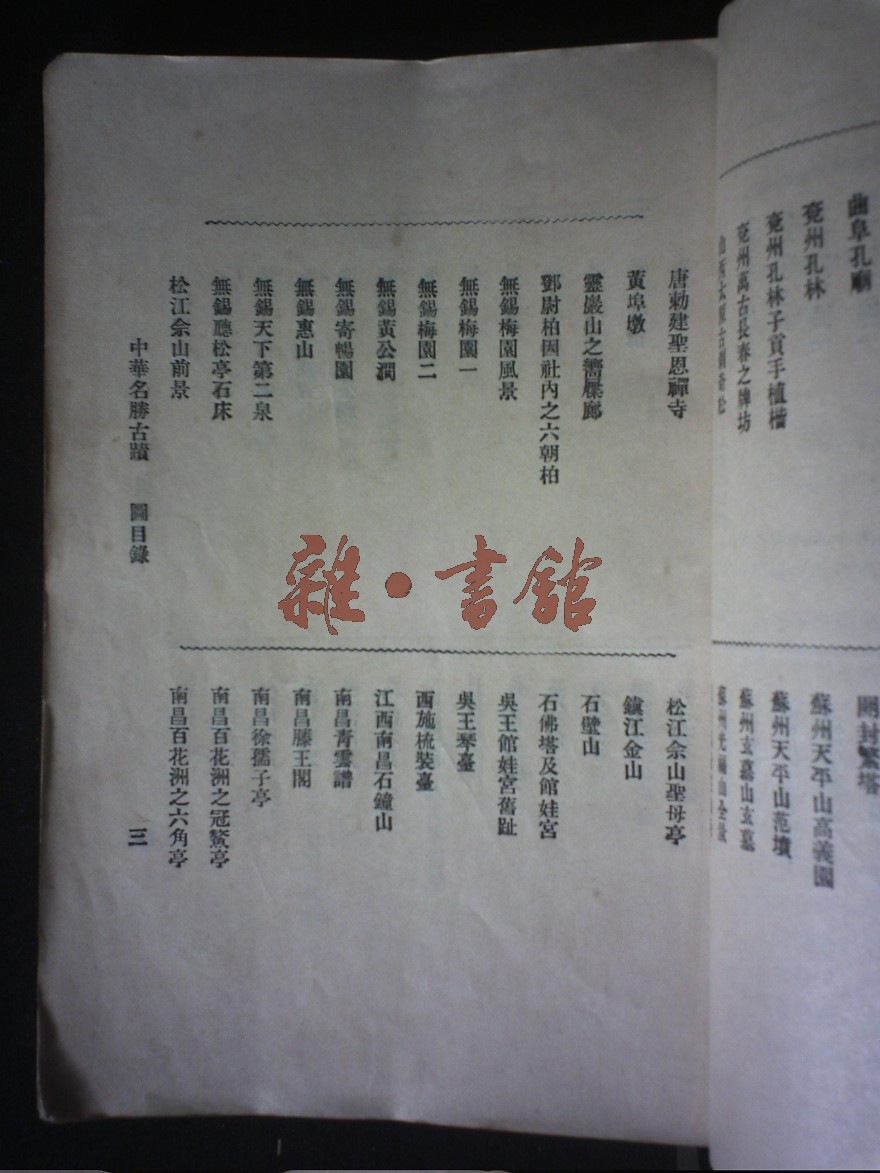 曲阜孔廟
兗州孔林
兗州孔林子貢手植楷
兗州萬古長春之牌坊
開封繁塔
蘇州天平山高義園
蘇州天平山范墳
蘇州玄墓山玄墓
唐勅建聖恩禪寺
黃埠墩
靈巖山之響屧廊
鄧尉柏因社內之六朝柏
無錫梅園風景
無錫梅園一
無錫梅園二
無錫黃公澗
無錫寄暢園
無錫惠山
無錫天下第二泉
無錫聽松亭石床
松江佘山前景
松江佘山聖母亭
鎮江金山
石壁山
石佛塔及館娃宮
吳王館娃宮舊趾
吳王琴臺
西施梳裝臺
江西南昌石鐘山
南昌青雲譜
南昌滕王閣
南昌徐孺子亭
南昌百花洲之冠鰲亭
南昌百花洲之六角亭
中華名勝古蹟 圖目錄
三
雜·書館